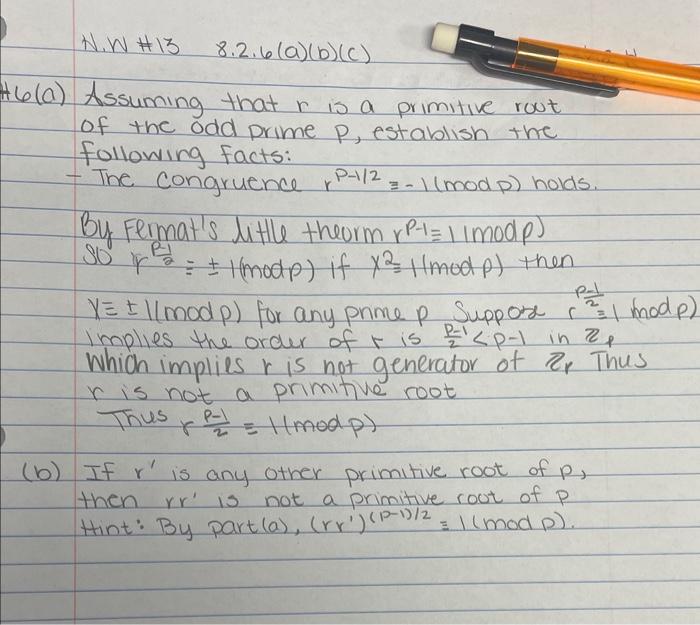 H.W #13 8.2.6(a)(b)(c)
#6(a) Assuming that r is a primitive root
of the odd prime p, establish the
following facts:
- The congruence r^(p-1/2) ≡ -1(mod p) holds.
By Fermat's little theorm r^(p-1) ≡ 1(mod p)
SO r^((p-1)/2) ≡ ± 1(mod p) if X² ≡ 1(mod p) then
X ≡ ± 1(mod p) for any prime p Suppose r^((p-1)/2) ≡ 1 (mod p)
implies the order of r is (p-1)/2 < p-1 in Z_p
which implies r is not generator of Z_p Thus
r is not a primitive root
Thus r^((p-1)/2) ≡ 1(mod p)
(b) If r' is any other primitive root of p,
then rr' is not a primitive root of p
Hint: By part(a), (rr')^((p-1)/2) ≡ 1(mod p).